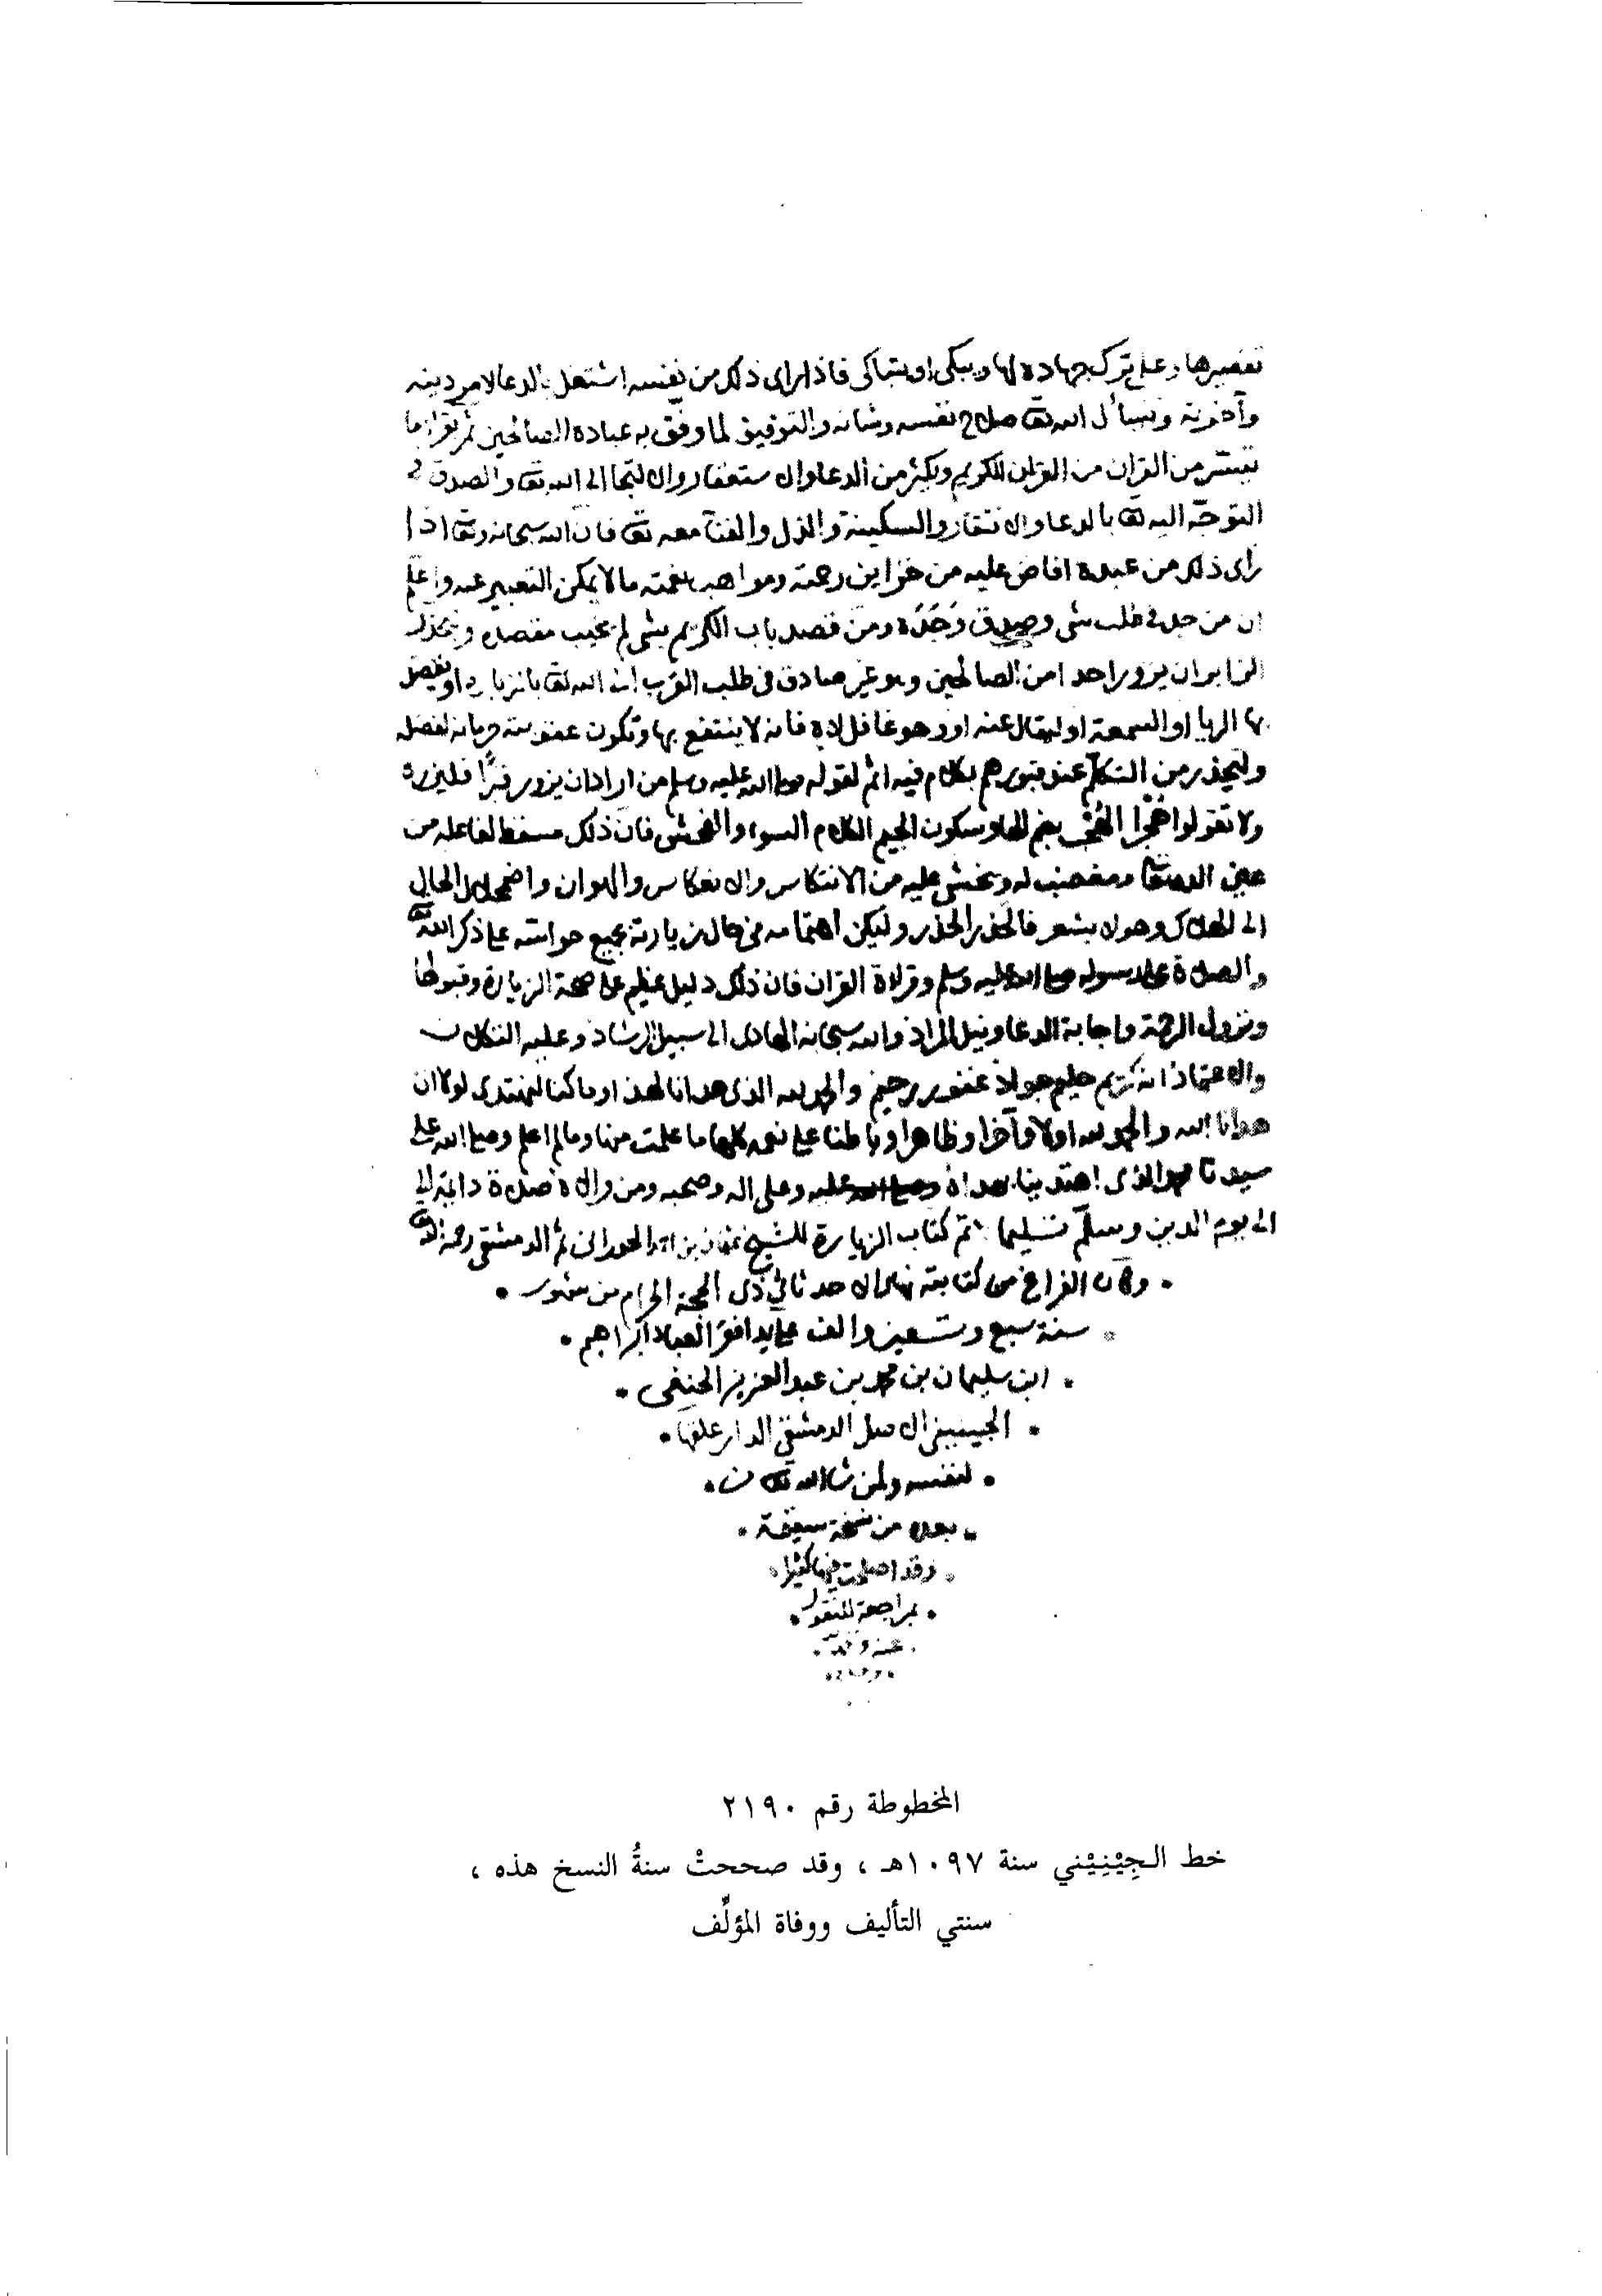 تقصيرها وعلى ترك جهاده لها ويبكى او يتباكى فاذا راى ذلك من نفسه اشتغل بالدعا لامر دينه
وآخرته ويسأل الله تعا صلاح نفسه وشانه والتوفيق لما وفق به عباده الصالحين ثم يقرا ما
تيسر من القران من القران الكريم ويكثر من الدعا والاستغفار والالتجا الى الله تعا والصدق في
التوجه اليه تعا بالدعا والافتقار والسكينة والذل والفنا معه تعا فان الله سبحانه وتعا اذا
راى ذلك من عبده افاض عليه من خزاين رحمته ومواهب نعمته ما لا يمكن التعبير عنه واعلم
ان من جد في طلب شى وصدق وَجَدَه ومن قصد باب الكريم بشى لم يخيب مقصده ويحذر
الزاير ان يزور احدا من الصالحين وهو غير صادق في طلب القرب الى الله تعا بالزيارة او يقصد
بها الريا او السمعة او ليقال عنه او وهو غافل لاه فانه لا ينتفع بها وتكون عقوبته حرمانه لفضله
وليحذر من التكلم عند قبورهم بكلام فيه اثم لقوله صلى الله عليه وسلم من اراد ان يزور قبرًا فليزره
ولا تقولوا هُجْرا الهُجْر بضم الها وسكون الجيم الكلام السوء والفحش فان ذلك مسقط لفاعله من
عين الله تعا ومغضب له ويخشى عليه من الانتكاس والانعكاس والهوان واضمحلال الحال
الى الهلاك وهو لا يشعر فالحذر الحذر وليكن اهتمامه في حال زيارته بجميع حواسه على ذكر الله تعا
والصلاة على رسوله صلى الله عليه وسلم وقراءة القران فان ذلك دليل عظيم على صحة الزيارة وقبولها
ونزول الرحمة واجابة الدعا ونيل المراد والله سبحانه الهادى الى سبيل الرشاد وعليه التكلان
والاعتماد انه كريم حليم جواد غفور رحيم والحمد لله الذى هدانا لهذا وما كنا لنهتدى لولا ان
هدانا الله والحمد لله اولا وآخرا وظاهرا وباطنا على نعمه كلها ما علمت منها وما لم اعلم وصلى الله على
سيدنا محمد الذى اهتدينا بهداه وصلى الله عليه وعلى اله وصحبه ومن والاه صلاة دايمة الى
الى يوم الدين وسلم تسليما تم كتاب الزيارة للشيخ عثمان بن احمد الحورانى ثم الدمشقى رحمه الله تعا
• وكان الفراغ من كتابته نهار الاحد ثاني ذى الحجة الحرام من شهور •
• سنة سبع وتسعين والف على يد افقر العباد ابراهيم •
• ابن سليمان بن محمد بن عبد العزيز الحنفى •
• الجينينى الاصل الدمشقى الدار علقها •
• لنفسه ولمن شا الله تعا من •
• بعده من نسخة سقيمة •
• وقد اصلحت فيها كثيرا •
• بمراجعة المنقول •
• عنه وقد •
المخطوطة رقم ٢١٩٠
خط الـجِيْنِيْني سنة ١٠٩٧هـ ، وقد صححتْ سنةُ النسخ هذه ،
سنتي التأليف ووفاة المؤلِّف